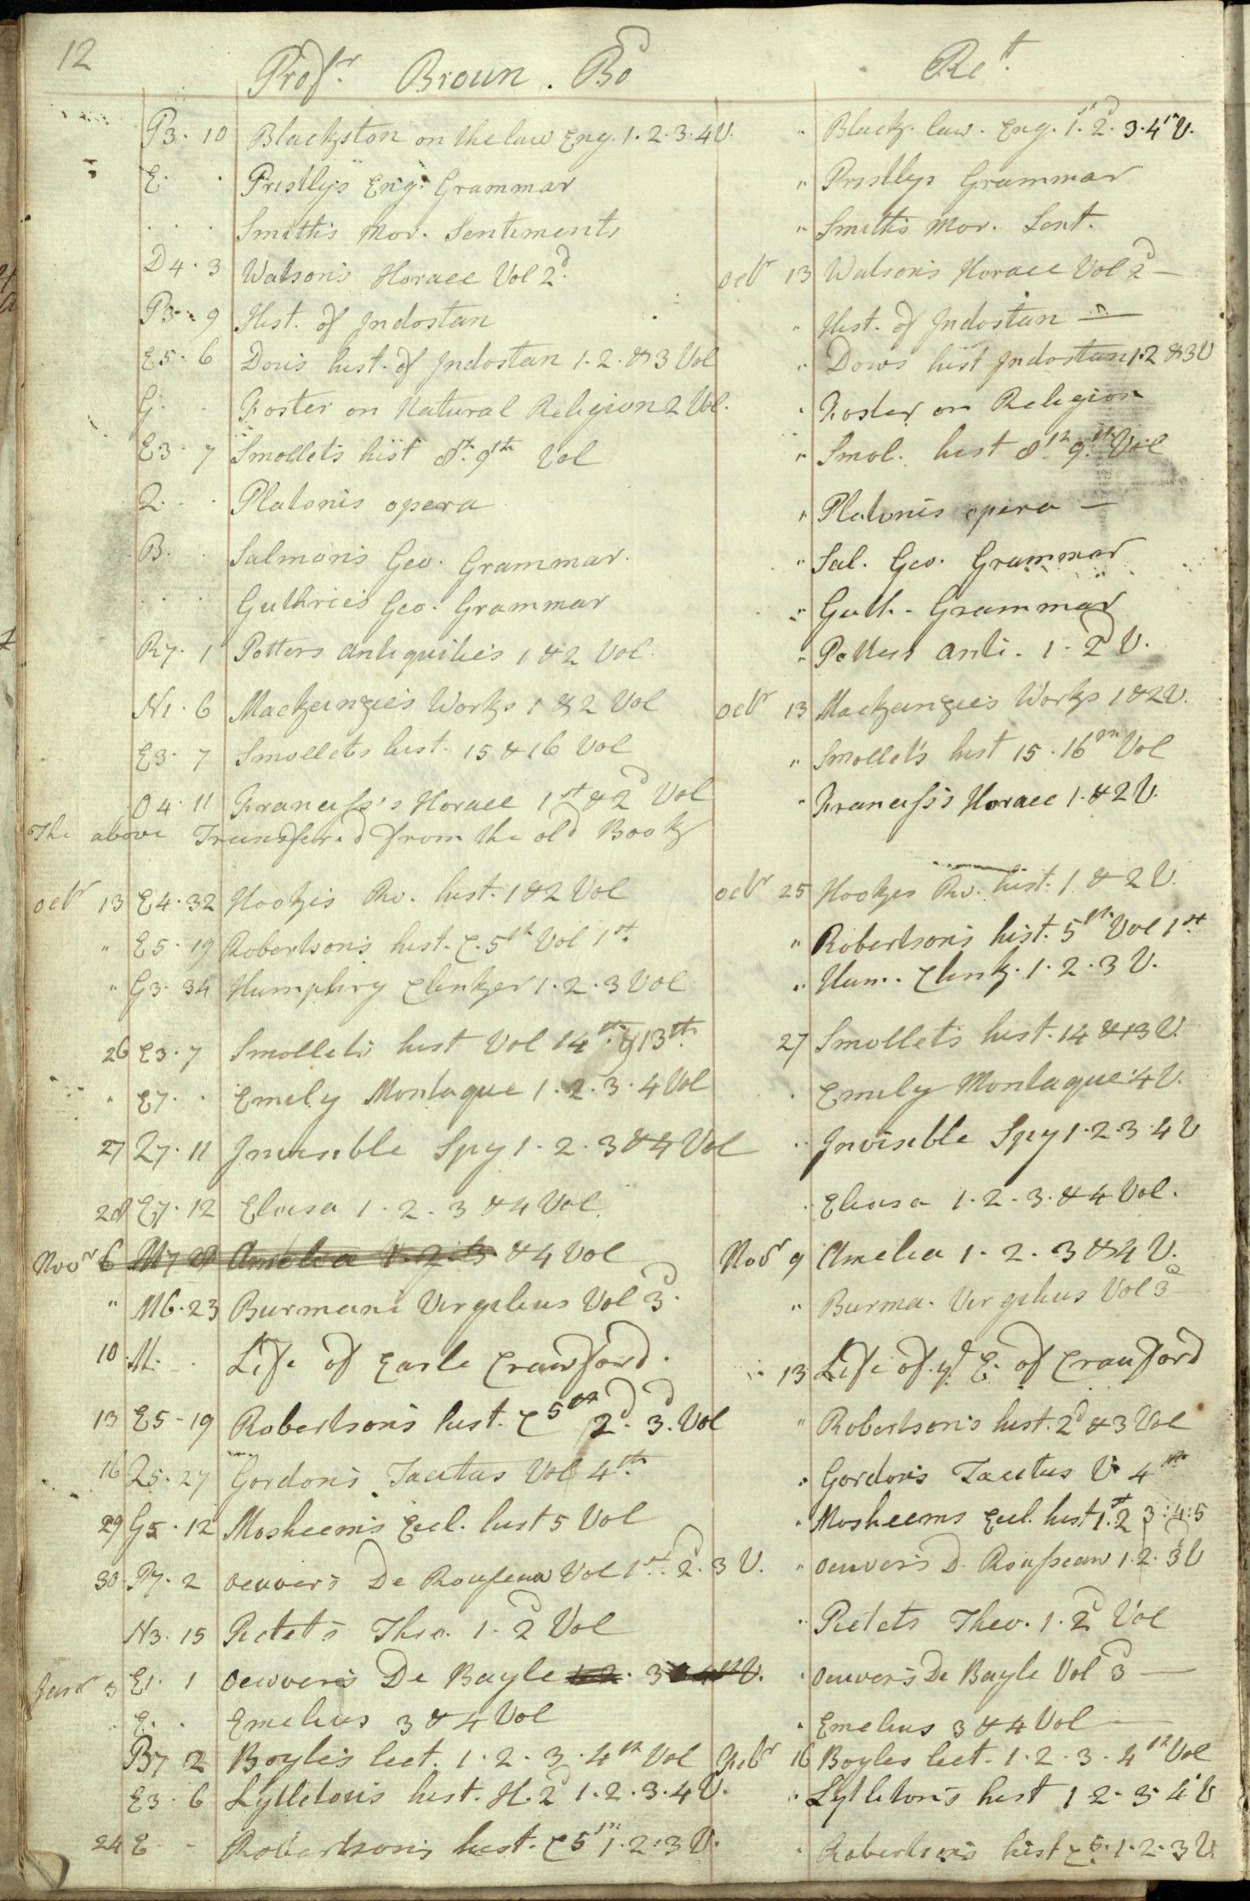 12 Profr. Broun. Bod Ret.
P3. 10 Blackston on the law Eng. 1. 2. 3. 4 V. " Black. law. Eng. 1st. 2d. 3. 4th V.
E. . Pristlys Eng. Grammar " Pristlys Grammar
. . . Smiths Mor. Sentiments " Smiths Mor. Sent.
D4. 3 Watson's Horace Vol 2d. Octr 13 Watson's Horace Vol 2d —
P3. 9 Hist. of Indostan " Hist. of Indostan —
E5. 6 Dow's hist. of Indostan 1. 2. & 3 Vol " Dows hist Indostan 1. 2 & 3 V
G. . Foster on Natural Religion 2 Vol. " Foster on Religion
E3. 7 Smollets hist 8th. 9th Vol " Smol. hist 8th 9th Vol
Q. . Platonis opera " Platonis opera —
B. . Salmon's Geo. Grammar. " Sal. Geo. Grammar
. . . Guthries Geo. Grammar " Guth. Grammar
R7. 1 Potters Antiquities 1 & 2 Vol. " Potters Anti. 1. 2d V.
N1. 6 Mackenzie's Works 1 & 2 Vol Octr 13 Mackenzie's Works 1 & 2 V.
E3. 7 Smollets hist. 15 & 16 Vol " Smollets hist 15. 16th Vol
O4. 11 Franciss's Horace 1st & 2d Vol " Franciss's Horace 1. & 2 V.
The above Transfer.d from the old Book
Octr 13 E4. 32 Hookes Ro. hist. 1 & 2 Vol Octr 25 Hookes Ro. hist. 1 & 2 V.
" E5. 19 Robertson's hist. C. 5th Vol 1st. " Robertson's hist. 5th Vol 1st
" G3. 34 Humphry Clinker 1. 2. 3 Vol " Hum. Clink. 1. 2. 3 V.
26 E3. 7 Smollets hist Vol 14th. & 13th. 27 Smollets hist. 14 & 13 V.
" E7. . Emily Montague 1. 2. 3. 4 Vol " Emily Montague. 4 V.
27 Q7. 11 Invisible Spy 1. 2. 3 & 4 Vol " Invisible Spy 1. 2. 3. 4 V
28 E7. 12 Eloisa 1. 2. 3 & 4 Vol. " Eloisa 1. 2. 3. & 4 Vol.
Novr 6 Amelia 1. 2. 3 & 4 Vol Novr 9 Amelia 1. 2. 3 & 4 V.
" M6. 23 Burmani Virgilius Vol 3d. " Burma. Virgilius Vol 3d
10 M. . Life of Earle Crawford. 13 Life of ye E. of Crauford
13 E5. 19 Robertson's hist. C 5th 2d. 3d. Vol " Robertson's hist. 2d & 3 Vol
16 Q5. 27 Gordon's Tacitus Vol 4th " Gordon's Tacitus V 4th
29 G5. 12 Mosheem's Eccl. hist 5 Vol " Mosheems Eccl. hist 1st. 2 3: 4: 5
30 P7. 2 Oeuvers De Rousseau Vol 1st. 2d. 3 V. " Oeuvers D. Rousseau 1. 2. 3d V
N3. 15 Pictets Theo. 1. 2d Vol " Pictets Theo. 1. 2d Vol
Janr 3 E1. 1 Oeuvers De Bayle 3 " Oeuvers De Bayle Vol 3d —
" E. . Emelius 3 & 4 Vol " Emelius 3 & 4 Vol —
B7 2 Boyle's lect. 1. 2. 3. 4th Vol Febr 16 Boyles lect. 1. 2. 3. 4th Vol
E3. 6 Lyttleton's hist. H. 2d 1. 2. 3. 4 V. " Lyttleton's hist 1 2. 3. 4 V
24 E . Robertson's hist. C 5th 1. 2. 3 V. " Robertson's hist C 5. 1. 2. 3 V.